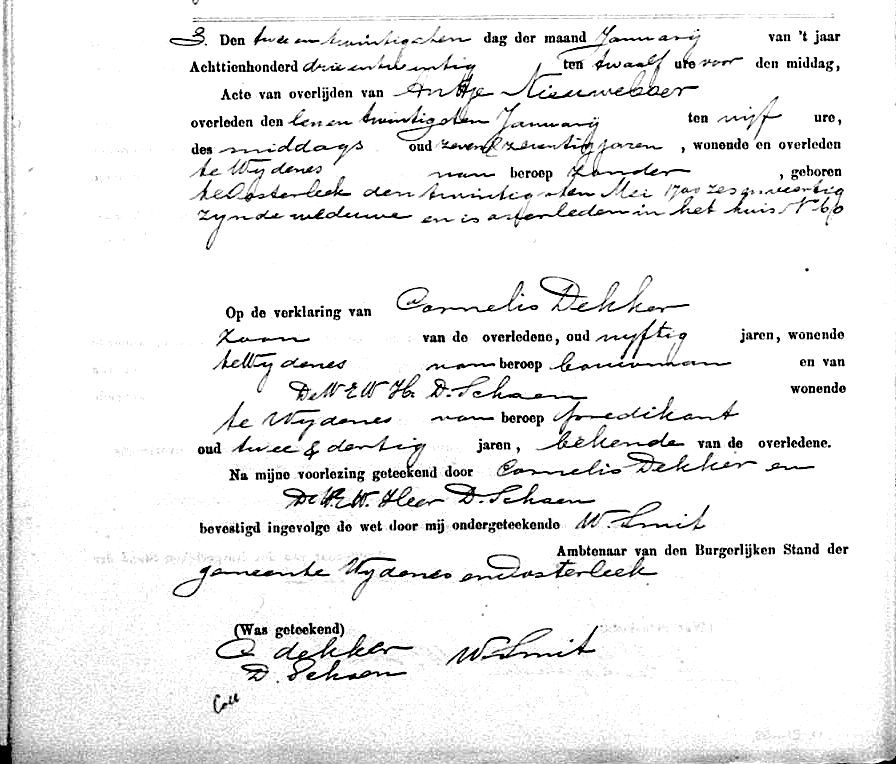 3. Den twee en twintigsten dag der maand Januarij van 't jaar
Achttienhonderd drie en twintig ten twaalf ure voor den middag,
Acte van overlijden van Antje Nieuweboer
overleden den een en twintigsten Januarij ten vijf ure,
des middags oud zeven & zeventig jaren, wonende en overleden
te Wydenes van beroep zonder, geboren
te Oosterleek den twintigsten Mei 1700 zes en veertig
zynde weduwe en is overleden in het huis No 60
Op de verklaring van Cornelis Dekker
Zoon van de overledene, oud vyftig jaren, wonende
te Wydenes van beroep bouwman en van
De W E W H. D. Schaen wonende
te Wydenes van beroep predikant
oud twee & dertig jaren, bekende van de overledene.
Na mijne voorlezing geteekend door Cornelis Dekker en
De W. E W. Heer D. Schaen
bevestigd ingevolge de wet door mij ondergeteekende W. Smit
Ambtenaar van den Burgerlijken Stand der
gemeente Wydenes en Oosterleek
(Was geteekend)
C dekker W. Smit
D. Schaen
Coll